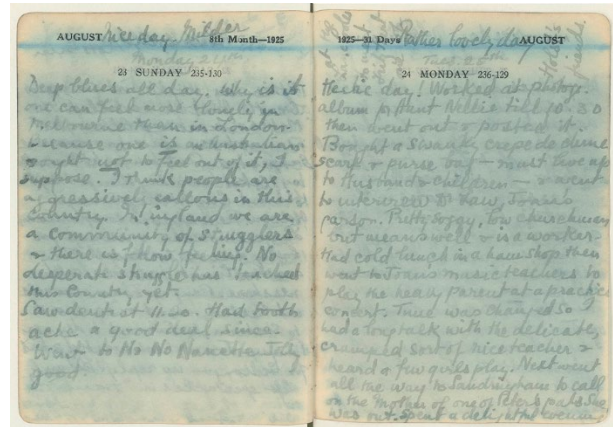 Nice day. Milder
AUGUST 8th Month—1925
Monday 24th
23 SUNDAY 235-130
Deep blues all day. Why is it
one can feel more lonely in
Melbourne than in London.
Because one is an Australian
& ought not to feel out of it, I
suppose. I think people are
aggressively callous in this
country. In England we are
a community of strugglers
& there is fellow feeling. No
desperate struggle has touched
this Country yet.
Saw dentist at 11. Had tooth
ache a good deal since.
Went to No No Nanette. Jolly
good
Rather lovely day
1925—31 Days AUGUST
Tues. 25th
24 MONDAY 236-129
Hectic day! Worked at photogr.
album for Aunt Nellie till 10.30
then went out & posted it.
Bought a swanky crepe de chine
scarf & purse bag — must live up
to Husband & children — & went
to interview Dr Law, Joan's
parson. Putty soggy, low churchman
but means well & is a worker.
Had cold lunch in a ham shop then
went to Joan's music teachers to
play the heavy parent at a practice
concert. Time was changed so
had a long talk with the delicate,
cramped sort of nice teacher &
heard a few girls play. Next went
all the way to Sandringham to call
on the mother of one of Peter's pals. She
was out. Spent a delightful evening
friends.